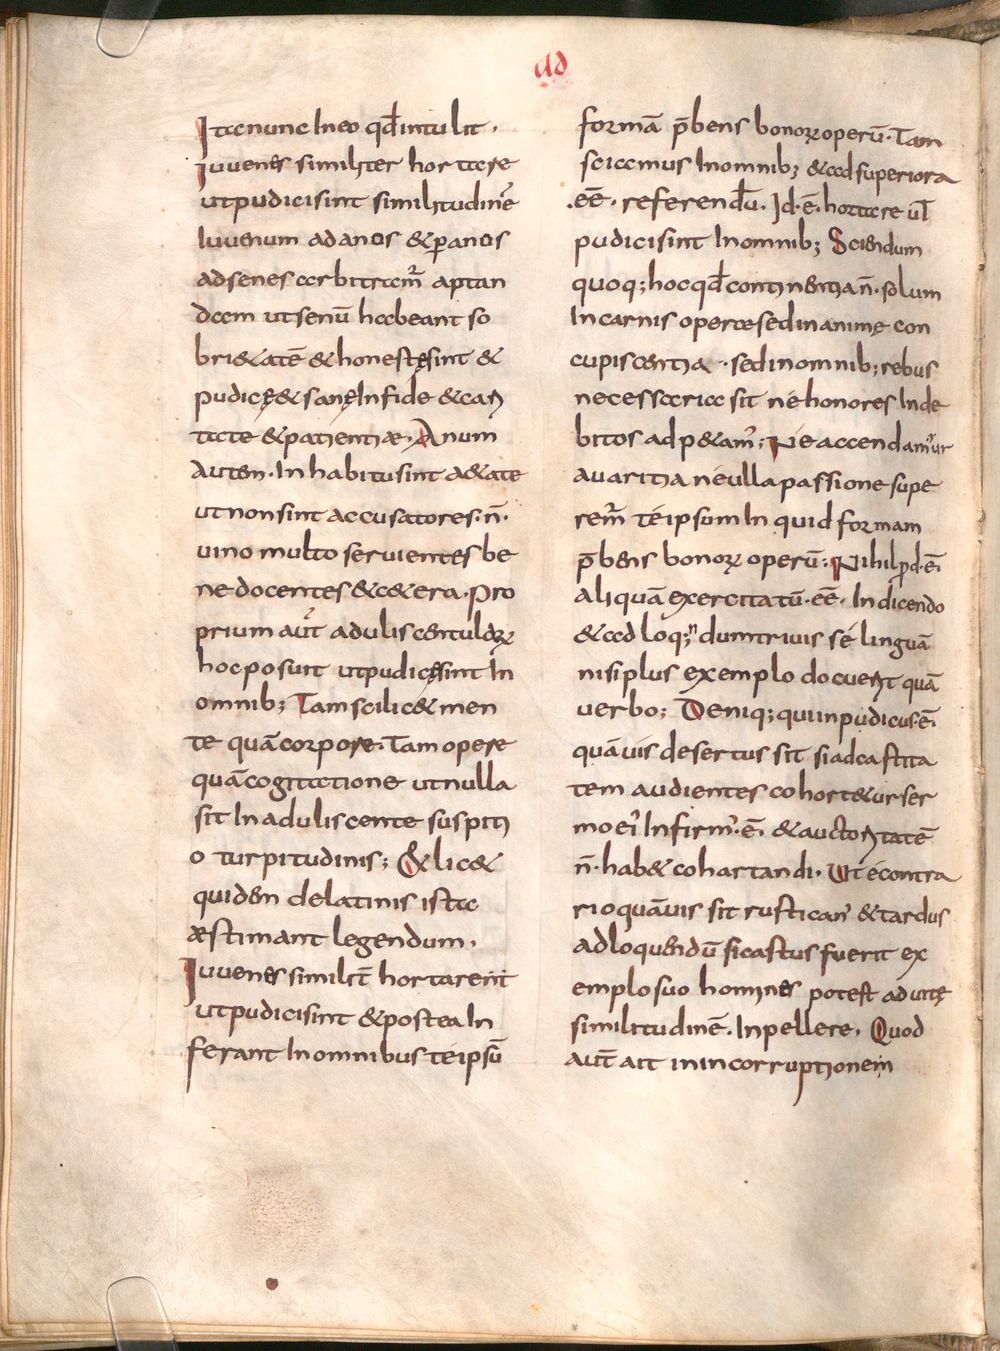 ad
Ita nunc In eo qđ intulit .
Iuuenes similiter hortare
ut pudici sint similitudinē
Iuuenum ad anos & p anos
ad senes arbitram̃ aptan
dam ut senū habeant so
bri&atē & honestę sint &
pudicę & sanę In fide & cari
tate & patientiæ . Anum
autem . In habitu sint a&ate
ut non sint accusatores . ñ .
uino multo seruientes be
ne docentes & c&era . Pro
prium aut̃ aduliscentulorꝝ
hoc posuit ut pudicę sint In
omnib; Tam scilic& men
te quā corpore . Tam opere
quā cogitatione ut nulla
sit In aduliscente suspiti
o turpitudinis ; & lic&
quidem de latinis ista
æstimant legendum .
Iuuenes similit̄ hortarent
ut pudici sint & postea In
ferant In omnibus té ipsū
formā p̄bens bonorꝝ operū . Tam
sciamus In omnib; & ad superiora
. éé . referendū . Id . ē . hortare uł
pudici sint In omnib; Sciendum
quoq; hoc qđ continentia ñ . solum
In carnis opera sed in animę con
cupiscentia . sed in omnib; rebus
necessaria sit né honores Inde
bitos ad p&am' ; Né accendamur
auaritia né ulla passione supe
rem̃ té ipsum In quid formam
p̄bens bonorꝝ operū . Nihil pd . ē
aliquā exercitatū . éé . In dicendo
& ad loq;n dum triuis sé linguā
nisi plus exemplo docuerit quā
uerbo ; Deniq; qui inpudicus . ē .
quāuis desertus sit si ad castita
tem audientes cohort&ur ser
mo ei' Infirm' . ē . & auctoritatē
ñ . hab& cohartandi . Ut é contra
rio quāuis sit rustican' & tardus
ad loquendū si castus fuerit ex
emplo suo homines potest ad uitę
similitudinē . Inpellere . Quod
aut̄ ait in incorruptionem